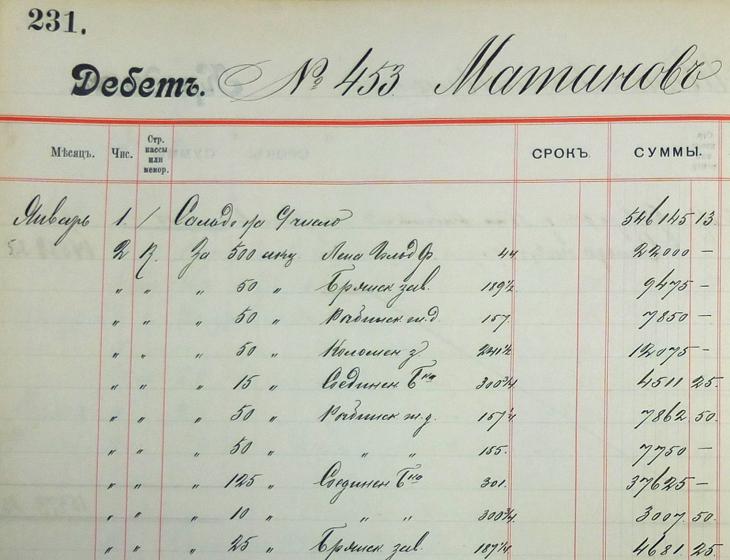 231.
Дебетъ. № 453 Матановъ
Мѣсяцъ. Чис. Стр. кассы или мемор. СРОКЪ. СУММЫ.
Январь 1. / Сальдо на 1 число 546145 13.
2 К. За 500 акц Лена Гольдф. 44 22000 —
„ „ „ 50 „ Брянск зав. 189½ 9475 —
„ „ „ 50 „ Рыбинск ж.д. 157. 7850 —
„ „ „ 50 „ Коломен з. 241½ 12075 —
„ „ „ 15 „ Соединен Бка 300¾ 4511 25.
„ „ „ 50 „ Рыбинск ж.д. 157¼ 7862 50.
„ „ „ 50 „ „ „ 155. 7750 —
„ „ „ 125 „ Соединен Бка 301. 37625 —
„ „ „ 10 „ „ „ 300¾ 3007 50.
„ „ „ 25 „ Брянск зав. 187¼ 4681 25